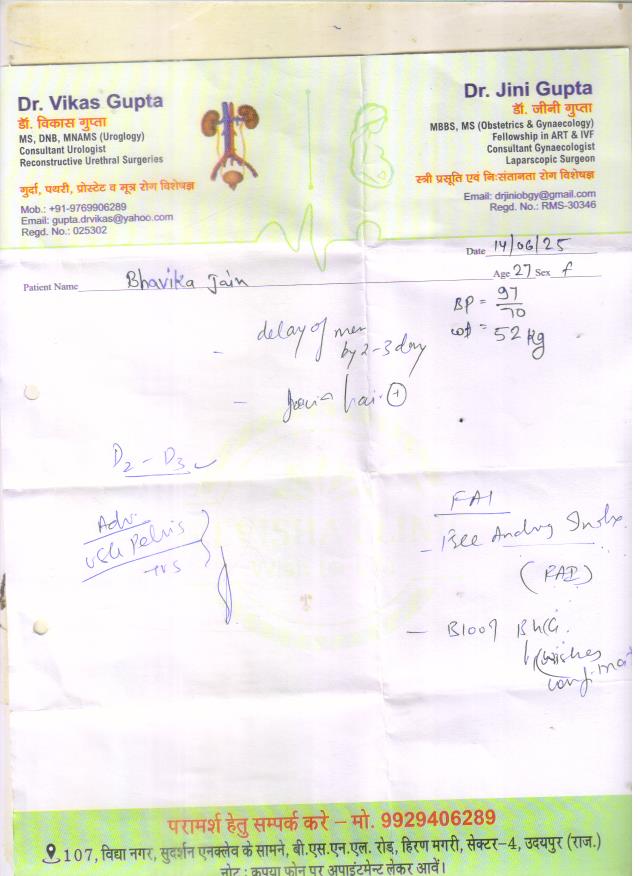 Dr. Vikas Gupta
डॉ. विकास गुप्ता
MS, DNB, MNAMS (Uroglogy)
Consultant Urologist
Reconstructive Urethral Surgeries
गुर्दा, पथरी, प्रोस्टेट व मूत्र रोग विशेषज्ञ
Mob.: +91-9769906289
Email: gupta.drvikas@yahoo.com
Regd. No.: 025302
Dr. Jini Gupta
डॉ. जीनी गुप्ता
MBBS, MS (Obstetrics & Gynaecology)
Fellowship in ART & IVF
Consultant Gynaecologist
Laparscopic Surgeon
स्त्री प्रसूति एवं निःसंतानता रोग विशेषज्ञ
Email: drjiniobgy@gmail.com
Regd. No.: RMS-30346
Date 14/06/25
Patient Name Bhavika Jain
Age 27 Sex f
BP = 97/70
wt = 52 kg
- delay of men
by 2-3 day
- hai +
D2 - D3
Adv.
USG Pelvis
TVS
FAI
- Free Androg Index
(FAI)
- Blood BhCG
(wishes